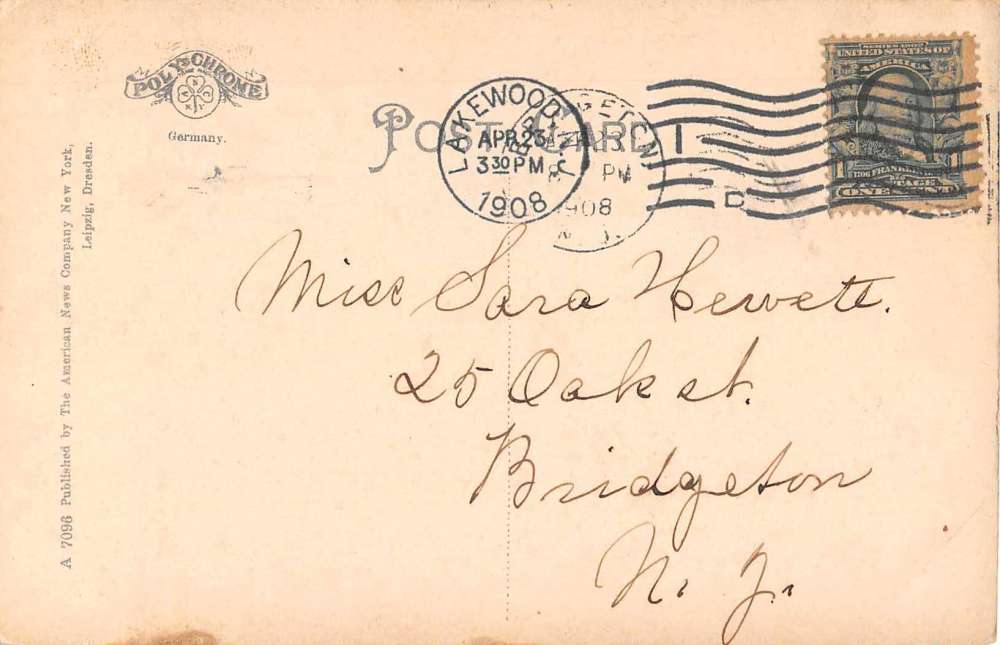 POLY-CHROME
A N C
N Y
Germany.
POST CARD
LAKEWOOD, N.J.
APR 23
3 30 PM
1908
PM
1908
D
SERIES 1902
UNITED STATES OF
AMERICA
1 1
1706 FRANKLIN
POSTAGE
ONE CENT
Miss Sara Hewett.
25 Oak st.
Bridgeton
N. J.
A 7096 Published by The American News Company New York,
Leipzig, Dresden.